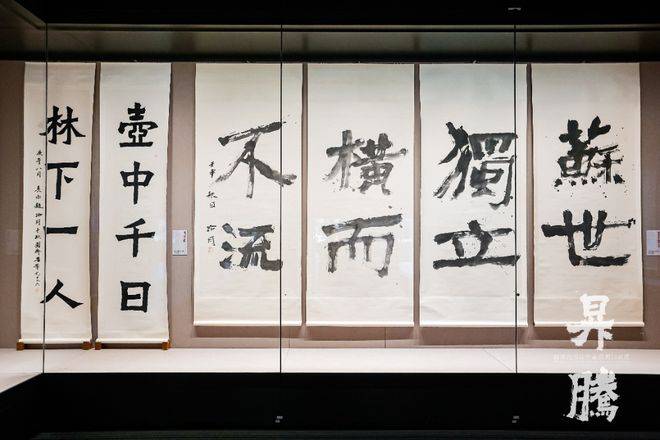 蘇世
獨立
橫而
不流
壺中千日
林下一人
昇騰